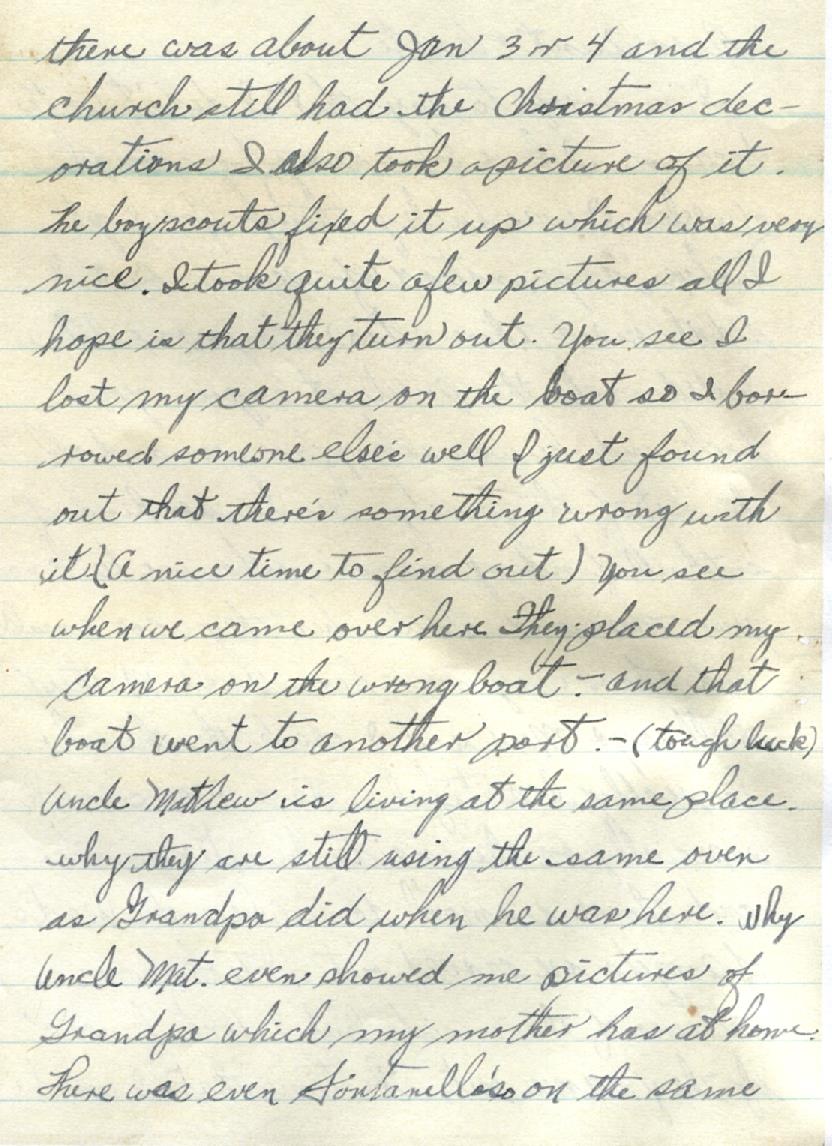 there was about Jan 3 or 4 and the
church still had the Christmas dec-
orations I also took a picture of it.
The boy scouts fixed it up which was very
nice. I took quite a few pictures all I
hope is that they turn out. You see I
lost my camera on the boat so I bor-
rowed someone else's well I just found
out that there's something wrong with
it (A nice time to find out) You see
when we came over here They placed my
camera on the wrong boat - and that
boat went to another port. - (tough luck)
Uncle Mathew is living at the same place.
why they are still using the same oven
as Grandpa did when he was here. Why
Uncle Mat. even showed me pictures of
Grandpa which my mother has at home.
There was even on the same